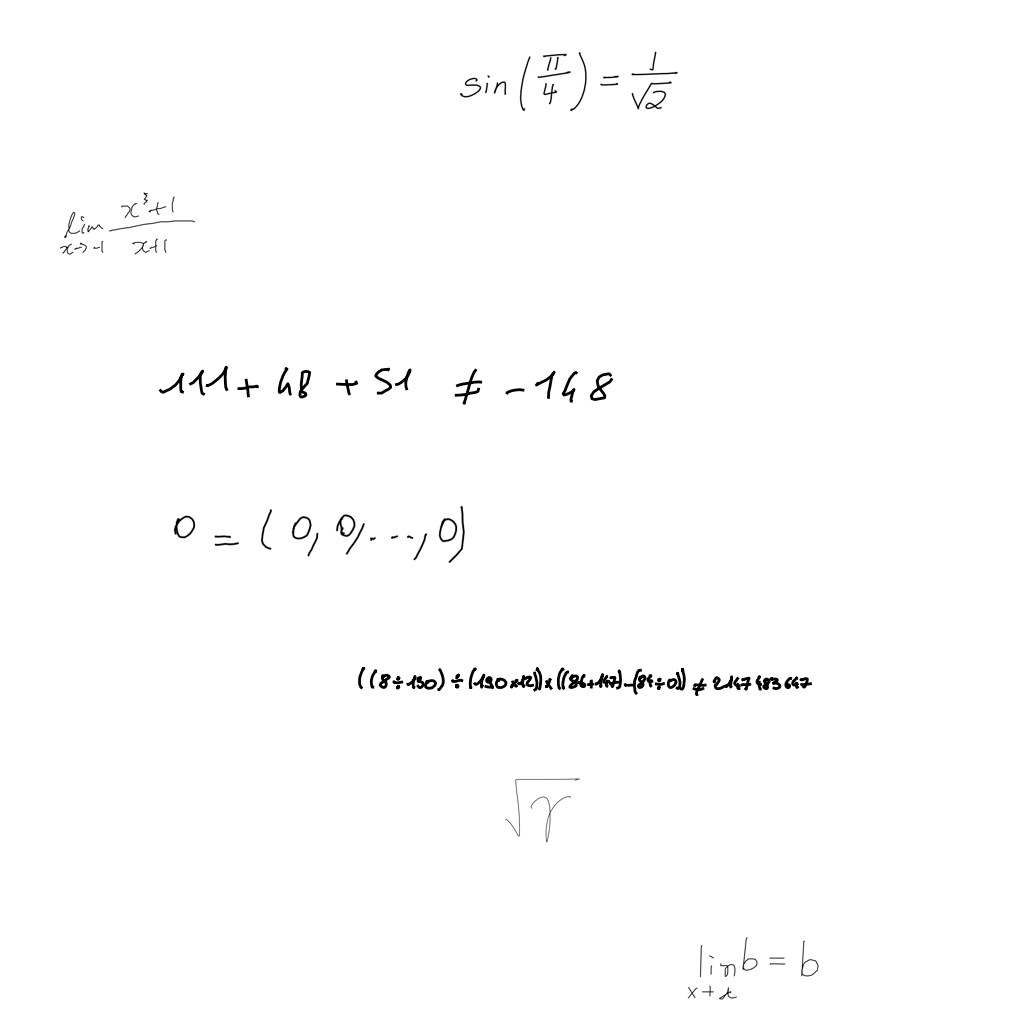 sin(π/4) = 1/√2
lim x→-1 (x³+1)/(x+1)
111 + 48 + 51 ≠ -148
0 = (0, 0, ..., 0)
((8÷130)÷(190×12))×((86+147)-(84÷0)) ≠ 2147483647
√γ
lim b = b